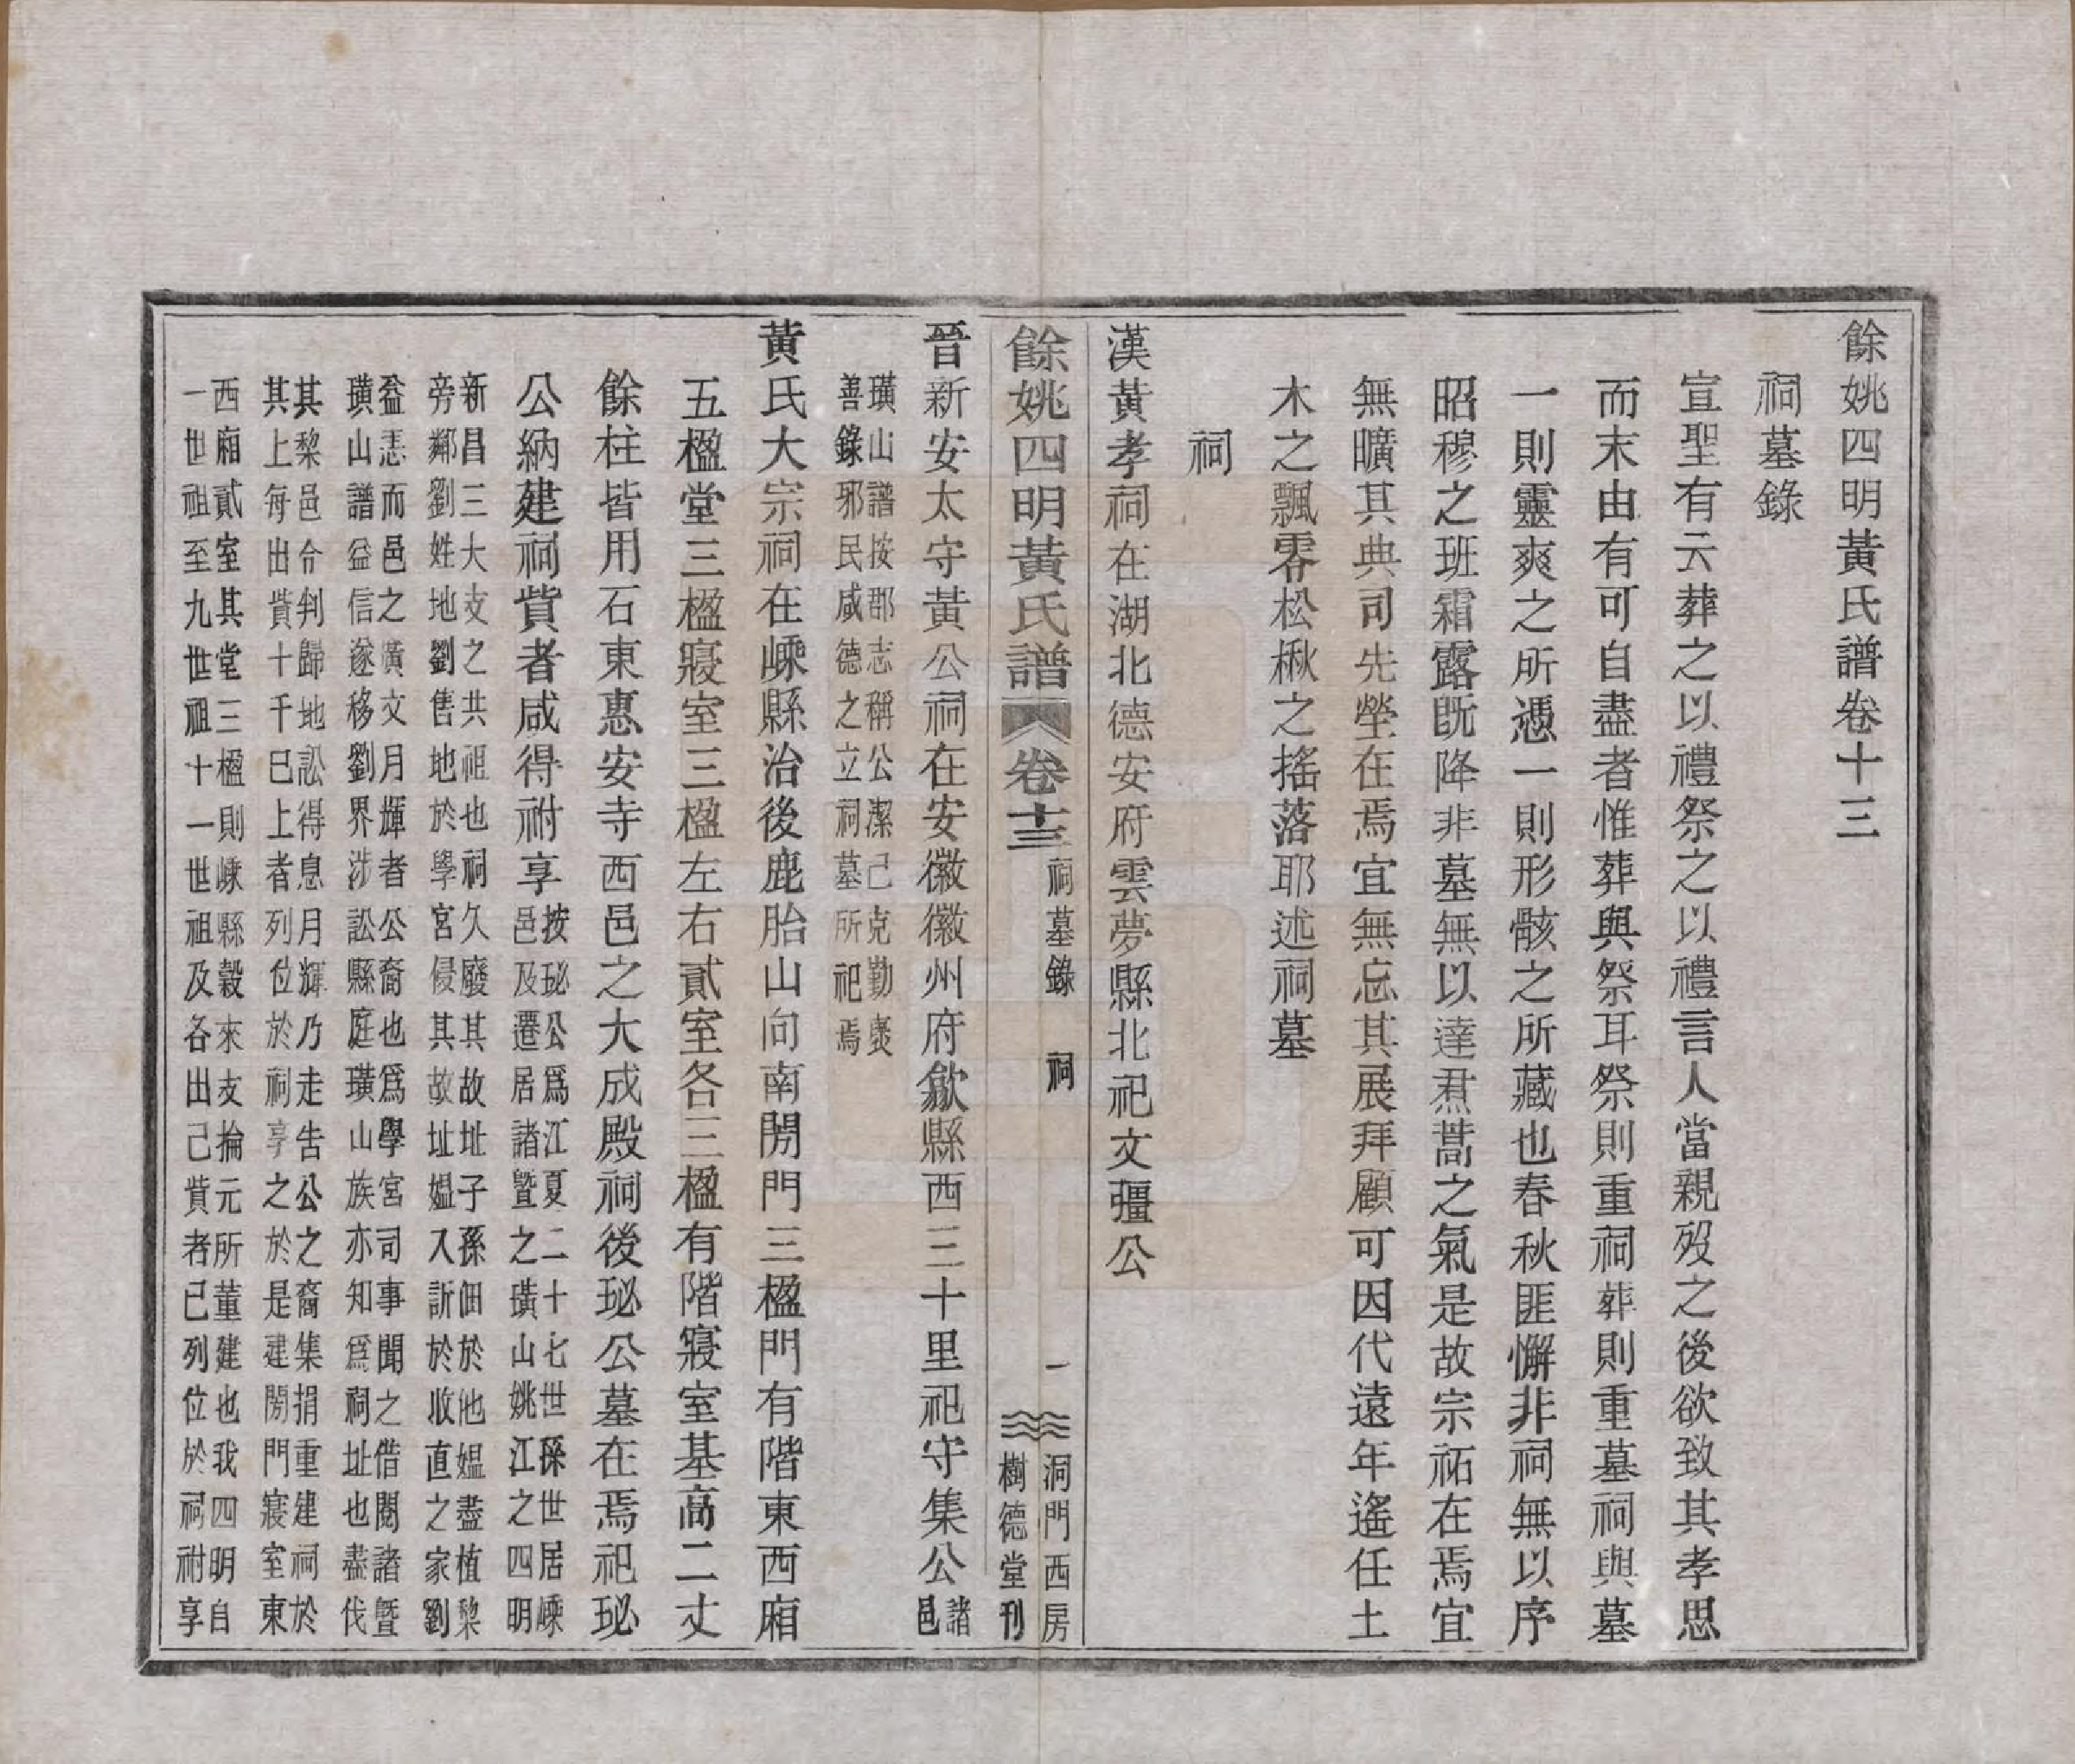 餘姚四明黃氏譜卷十三
祠墓錄
宣聖有云葬之以禮祭之以禮言人當親歿之後欲致其孝思
而末由有可自盡者惟葬與祭耳祭則重祠葬則重墓祠與墓
一則靈爽之所憑一則形骸之所藏也春秋匪懈非祠無以序
昭穆之班霜露既降非墓無以達焄蒿之氣是故宗祏在焉宜
無曠其典司先塋在焉宜無忘其展拜顧可因代遠年遙任土
木之飄零松楸之搖落耶述祠墓
祠
漢黃孝祠在湖北德安府雲夢縣北祀文彊公
餘姚四明黃氏譜 卷十三 祠墓錄 祠 一 洞門西房
樹德堂刊
晉新安太守黃公祠在安徽徽州府歙縣西三十里祀守集公諸
邑
璜山譜按郡志稱公潔己克勤褒
善錄邪民咸德之立祠墓所祀焉
黃氏大宗祠在嵊縣治後鹿胎山向南閍門三楹門有階東西廂
五楹堂三楹寢室三楹左右貳室各三楹有階寢室基高二丈
餘柱皆用石東惠安寺西邑之大成殿祠後珌公墓在焉祀珌
公納建祠貲者咸得祔享按珌公為江夏二十七世孫世居嵊
邑及遷居諸暨之璜山姚江之四明
新昌三大支之共祖也祠久廢其故址子孫佃於他媼盡植棃
旁鄰劉姓地劉售地於學宮侵其故址媼入訢於收直之家劉
益恚而邑之黃文月輝者公裔也為學宮司事聞之借閱諸暨
璜山譜益信遂移劉界涉訟縣庭璜山族亦知為祠址也盡伐
其棃邑令判歸地訟得息月輝乃走告公之裔集捐重建祠於
其上每出貲十千已上者列位於祠享之於是建閍門寢室東
西廂貳室其堂三楹則嵊縣穀來支掄元所董建也我四明自
一世祖至九世祖十一世祖及各出己貲者已列位於祠祔享